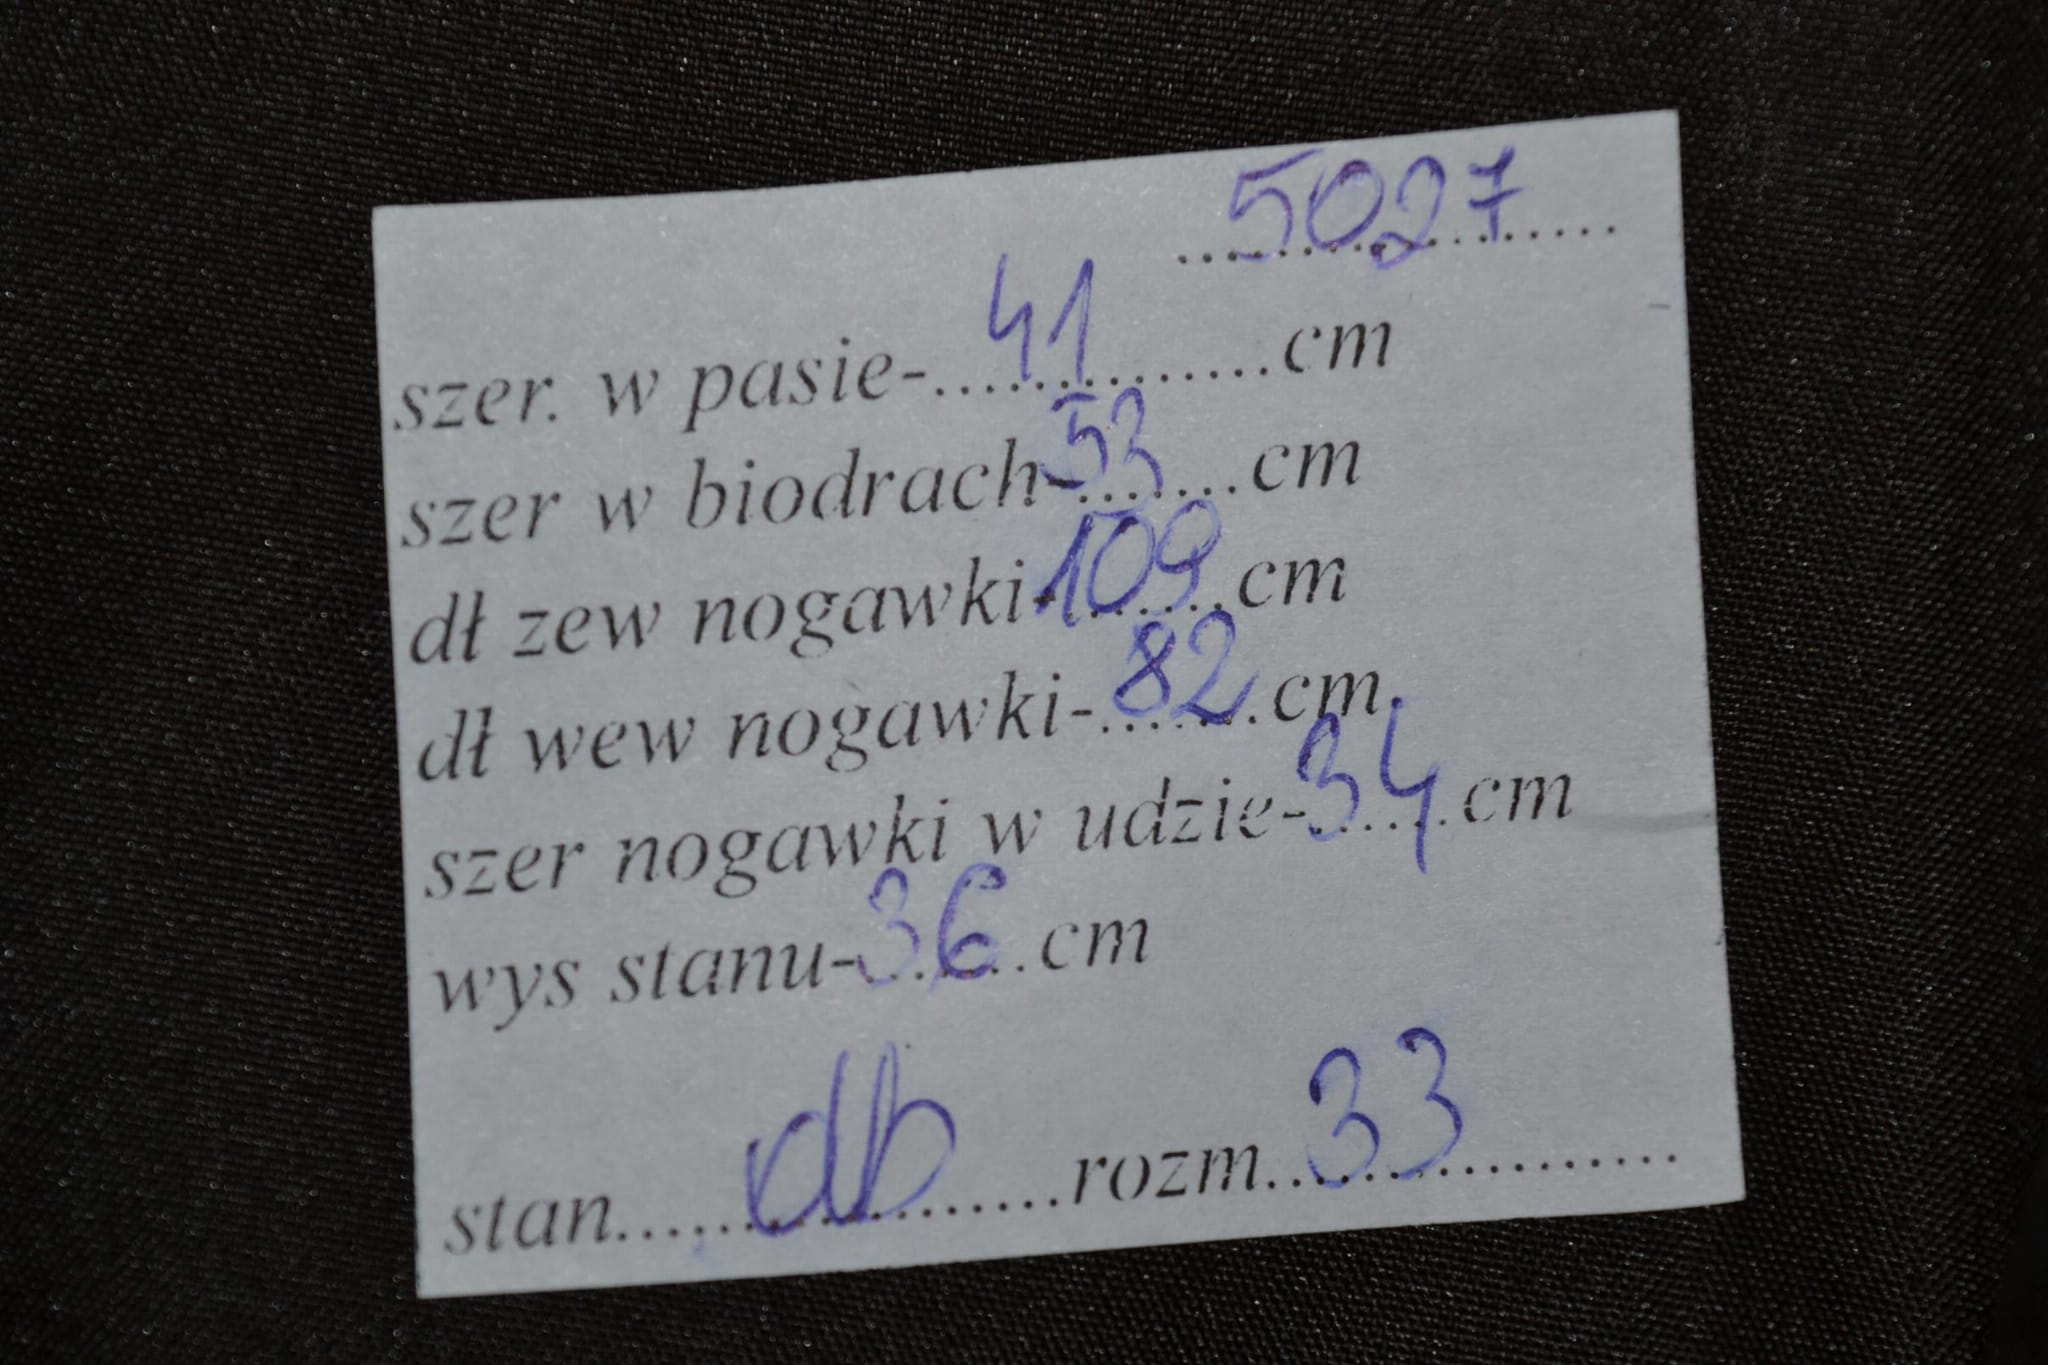 5027
szer. w pasie-...41...cm
szer w biodrach-53...cm
dł zew nogawki-109...cm
dł wew nogawki-...82...cm
szer nogawki w udzie-34...cm
wys stanu-36...cm
stan...db...rozm...33...